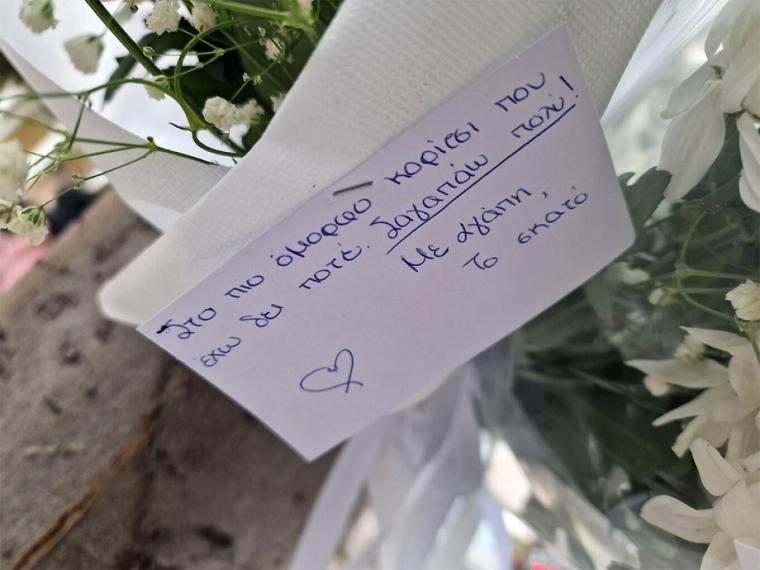 Στο πιο όμορφο κορίτσι που
έχω δει ποτέ. Σαγαπάω πολύ!
Με αγάπη,
Το σκατό